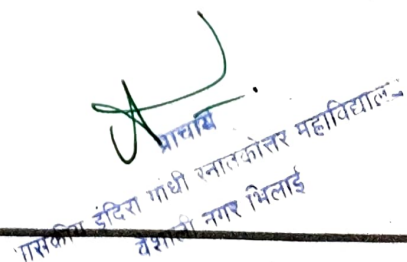 प्राचार्य
शासकीय इंदिरा गांधी स्नातकोत्तर महाविद्यालय
वैशाली नगर भिलाई